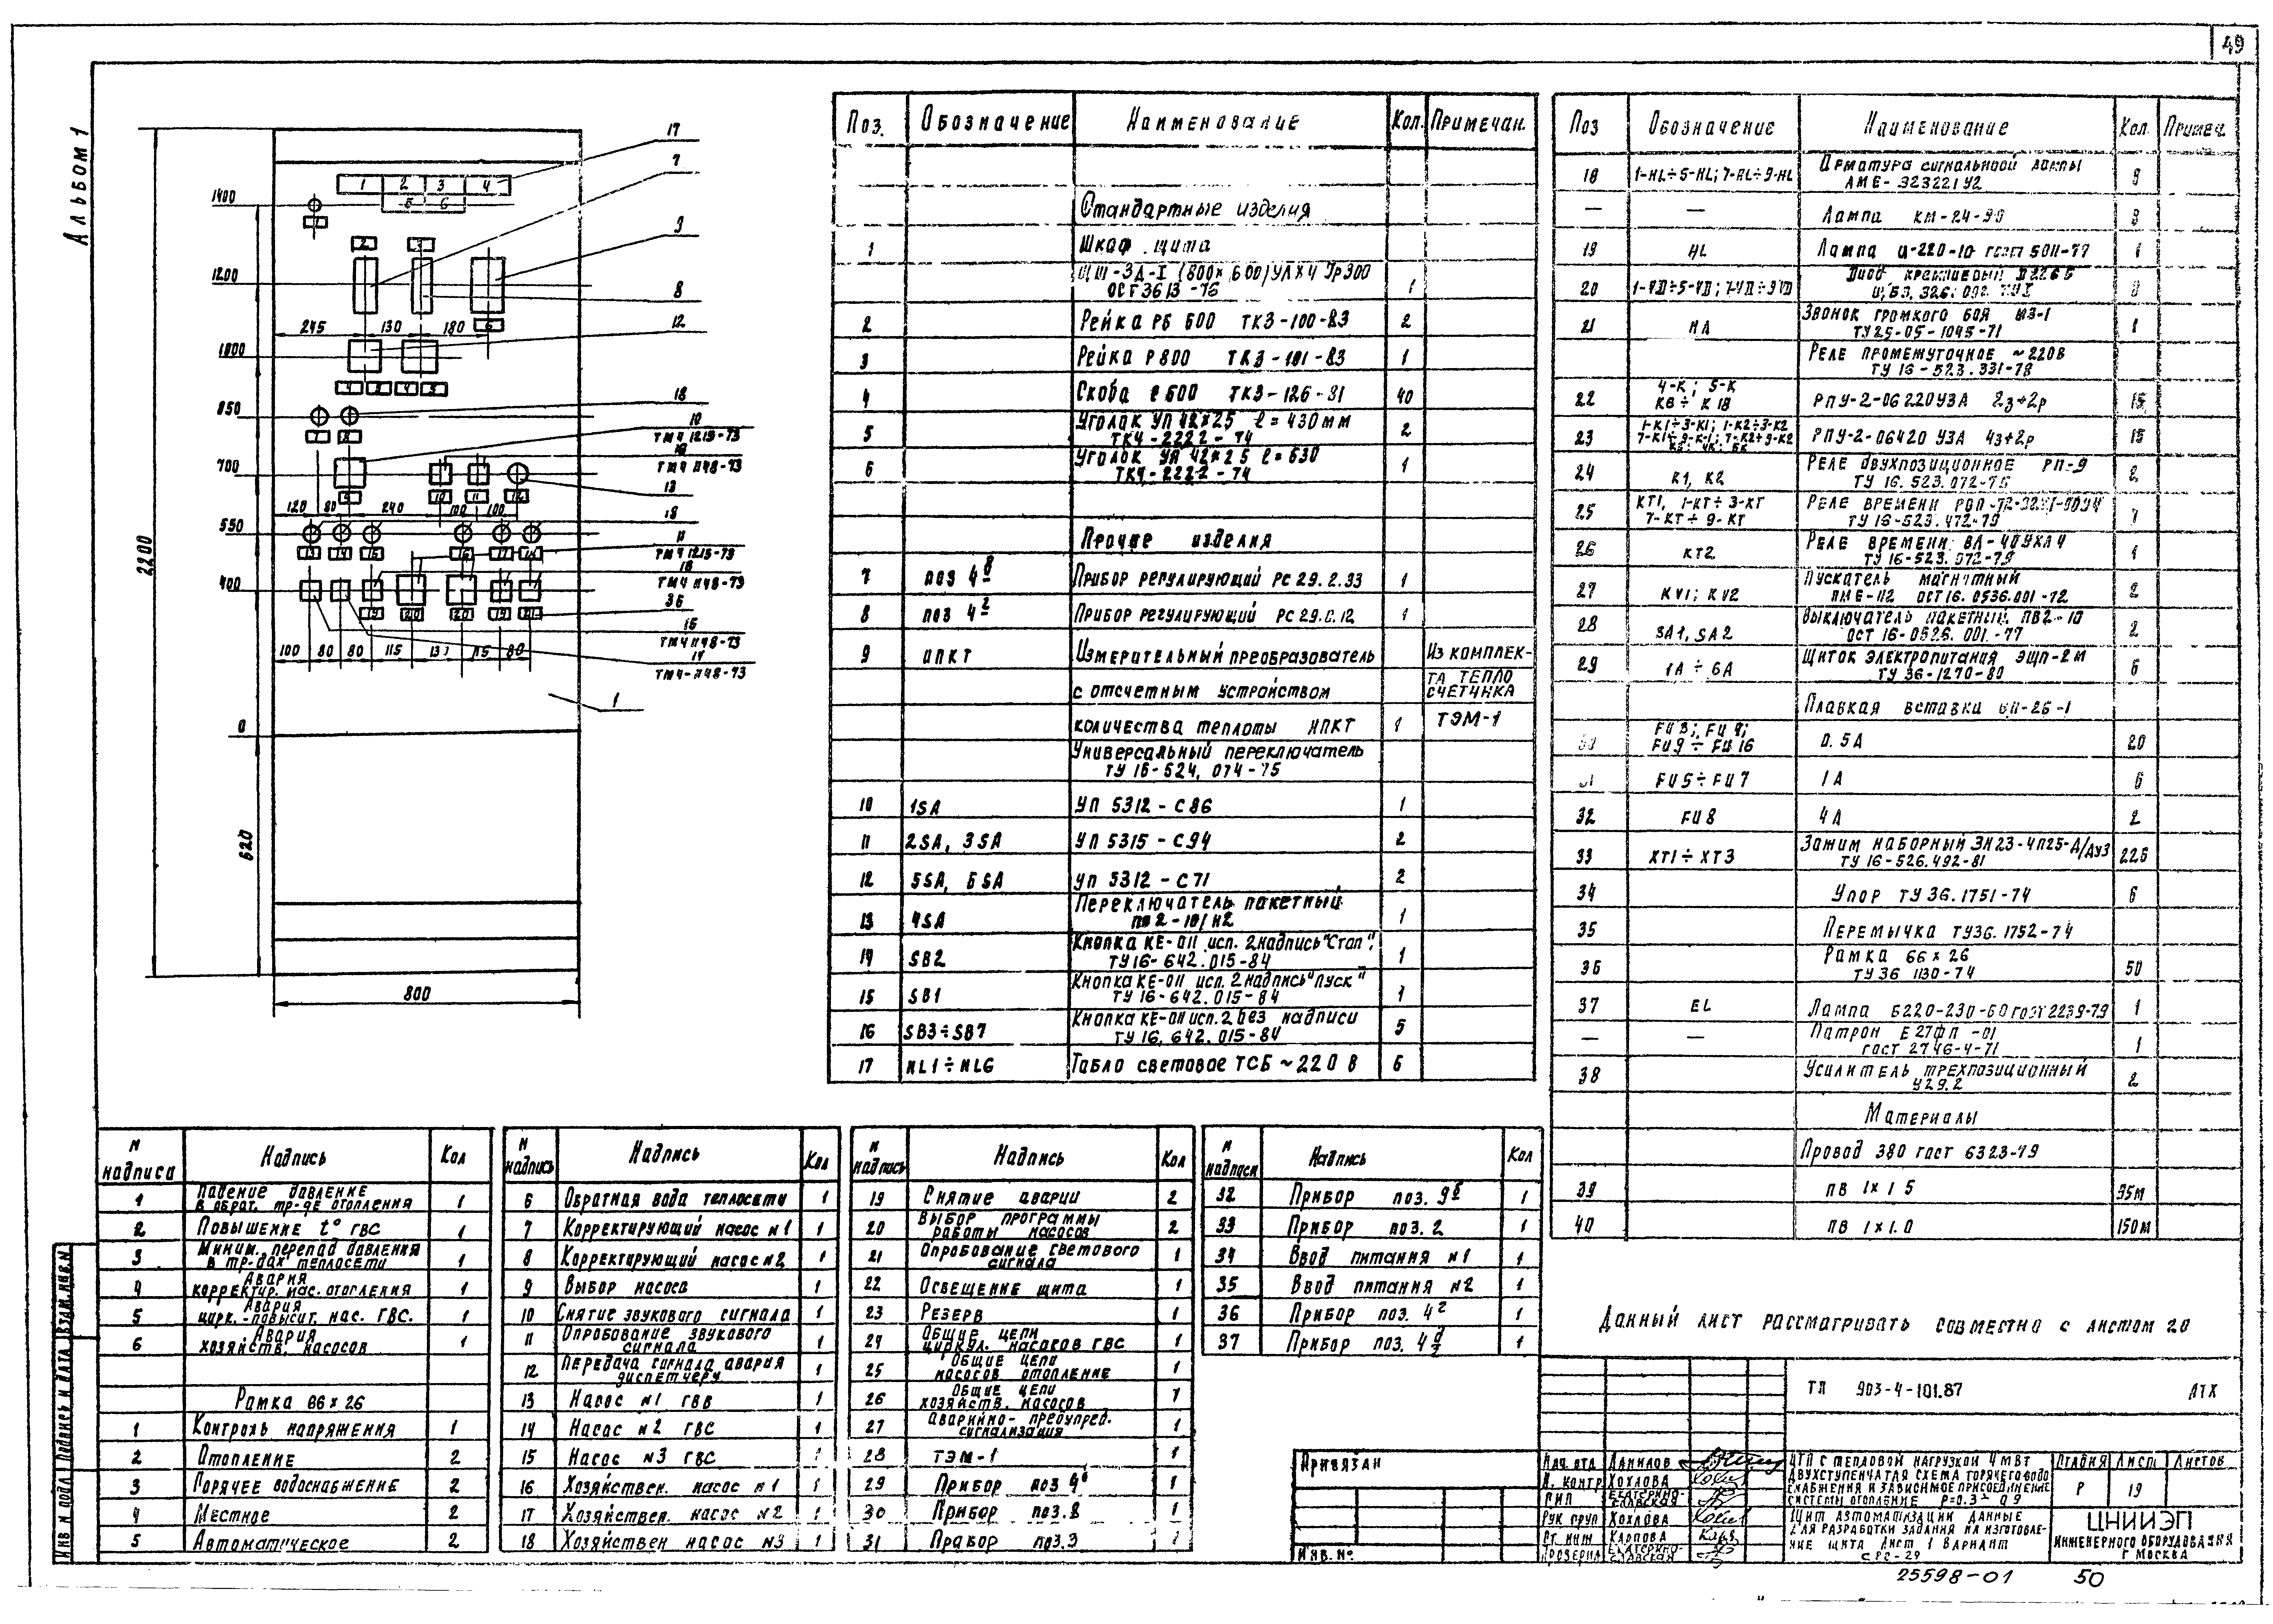 49
Альбом 1
17
7
1 2 3 4
5 6
1400
9
1200
8
245 130 180
12
1000
850
18
10
ТМ4 1215-73
16
ТМ4 1148-73
700
13
120 80 240 100 100
550
18
11
ТМ4 1215-73
16
ТМ4 1148-73
400
36
15
ТМ4 1148-73
14
ТМ4-1148-73
100 80 80 115 115 80
1
0
2200
620
800
Поз. Обозначение Наименование Кол. Примечан.
Стандартные изделия
1 Шкаф щита
ЩШ-ЗД-I (800×600) УЛХ4 Ур300
ОСТ 36 13-76 1
2 Рейка РБ 600 ТК3-100-83 2
3 Рейка Р800 ТК3-101-83 1
4 Скоба е600 ТК3-126-81 40
5 Уголок УП 42×25 ℓ=430мм
ТК4-2222-74 2
6 Уголок УП 42×25 ℓ=630
ТК4-2222-74 1
Прочие изделия
7 поз 4 Прибор регулирующий РС 29.2.33 1
8 поз 4 Прибор регулирующий РС 29.0.12 1
9 ИПКТ Измерительный преобразователь Из комплек-
с отсчетным устройством та тепло
счетчика
количества теплоты ИПКТ 1 ТЭМ-1
Универсальный переключатель
ТУ 16-524.074-75
10 1SA УП 5312-С86 1
11 2SA, 3SA УП 5315-С94 2
12 5SA, 6SA УП 5312-С71 2
13 4SA Переключатель пакетный
1
14 SB2 Кнопка КЕ-011 исп. 2 надпись "Стоп",
ТУ16-642.015-84 1
15 SB1 Кнопка КЕ-011 исп. 2 надпись "Пуск"
ТУ 16-642.015-84 1
16 SB3÷SB7 Кнопка КЕ-011 исп. 2 без надписи
ТУ 16.642.015-84 5
17 HL1÷HL6 Табло световое ТСБ ~220 В 6
Поз Обозначение Наименование Кол. Примеч.
18 1-HL÷5-HL; 7-HL÷9-HL Арматура сигнальной лампы
АМЕ-323221У2
— — Лампа КМ-24-90
19 HL Лампа Ц-220-10 гост 5011-77 1
20 Диод кремниевый Д226Б
21 HA Звонок громкого боя МЗ-1
ТУ25-05-1045-71 1
Реле промежуточное ~220В
ТУ 16-523.331-78
22 4-К; 5-К
К6÷К18 РПУ-2-06220У3А 2з+2р 15
23 1-К1÷3-К1; 1-К2÷3-К2
7-К1÷9-К1; 7-К2÷9-К2 РПУ-2-06420 У3А 4з+2р 15
24 К1, К2 Реле двухпозиционное РП-9
ТУ 16.523.072-75 2
25 КТ1, 1-КТ÷3-КТ
7-КТ÷9-КТ Реле времени
ТУ 16-523.472-79 7
26 КТ2 Реле времени ВЛ-40УХЛ4
1
27 KV1; KV2 Пускатель магнитный
ПМЕ-112 ОСТ 16.0536.001-72 2
28 SA1, SA2 Выключатель пакетный ПВ2-10
ОСТ 16-0526.001.-77 2
29 1А÷6А Щиток электропитания ЭЩП-2М
ТУ 36-1270-80 6
Плавкая вставка ВП-26-1
30 FU3; FU4;
FU9÷FU16 0.5А 20
31 FU5÷FU7 1А 6
32 FU8 4А 2
33 ХТ1÷ХТ3 Зажим наборный ЗН23-4П25-Д/ДУ3
ТУ 16-526.492-81 225
34 Упор ТУ 36.1751-74 6
35 Перемычка ТУ36.1752-74
36 Рамка 66×26
ТУ 36 1130-74 50
37 EL Лампа Б220-230-60 гост 2239-79 1
— — Патрон Е27ФП-01
гост 2746-4-71 1
38 Усилитель трехпозиционный
У29.2 2
Материалы
Провод 380 гост 6323-79
39 ПВ 1×1 5 95м
40 ПВ 1×1.0 150м
N надписа Надпись Кол
1 Падение давления
в обрат. тр-де отопления 1
2 Повышение t° ГВС 1
3 Миним. перепад давления
в тр-дах теплосети 1
4 Авария
корректир. нас. отопления 1
5 Авария
цирк.-повысит. нас. ГВС. 1
6 Авария
хозяйств. насосов 1
Рамка 66×26
1 Контроль напряжения 1
2 Отопление 2
3 Горячее водоснабжение 2
4 Местное 2
5 Автоматическое 2
N надпись Надпись Кол
6 Обратная вода теплосети 1
7 Корректирующий насос N1 1
8 Корректирующий насос N2 1
9 Выбор насоса 1
10 Снятие звукового сигнала 1
11 Опробование звукового
сигнала 1
12 Передача сигнала авария
диспетчеру 1
13 Насос N1 ГВВ 1
14 Насос N2 ГВС 1
15 Насос N3 ГВС 1
16 Хозяйствен. насос N1 1
17 Хозяйствен. насос N2 1
18 Хозяйствен насос N3 1
N надпись Надпись Кол
19 Снятие аварии 2
20 Выбор программы
работы насосов 2
21 Опробование светового
сигнала 1
22 Освещение щита 1
23 Резерв 1
24 Общие цепи
циркул. насосов ГВС 1
25 Общие цепи
насосов отопление 1
26 Общие цепи
хозяйств. насосов 1
27 Аварийно-предупред.
сигнализация 1
28 ТЭМ-1 1
29 Прибор поз 4 1
30 Прибор поз. 8 1
31 Прабор поз. 3 1
N надписи Надпись Кол
32 Прибор поз. 9 1
33 Прибор поз. 2 1
34 Ввод питания N1 1
35 Ввод питания N2 1
36 Прибор поз. 4г 1
37 Прибор поз. 4 1
Данный лист рассматривать совместно с листом 20
ТП 903-4-101.87 АТХ
Привязан
Инв. №
Нач. отд Данилов
Н. контр Хохлова
ГИП Екатерино-
славская
Рук груп Хохлова
Ст. инж Карпова
Проверил Екатерино-
славская
ЦТП с тепловой нагрузкой 4 МВт
двухступенчатая схема горячего водо
снабжения и зависимое присоединение
системы отопление P=0.3÷0.9
Стадия Лист Листов
Р 19
Щит автоматизации данные
для разработки задания на изготовле-
ние щита Лист 1 Вариант
с РС-29
ЦНИИЭП
инженерного оборудования
г Москва
Инв N подл Подпись и дата Взам. инв. N
25598-01 50